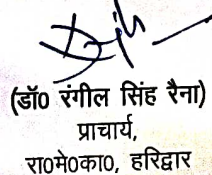 (डॉ० रंगील सिंह रैना)
प्राचार्य,
रा०मे०का०, हरिद्वार